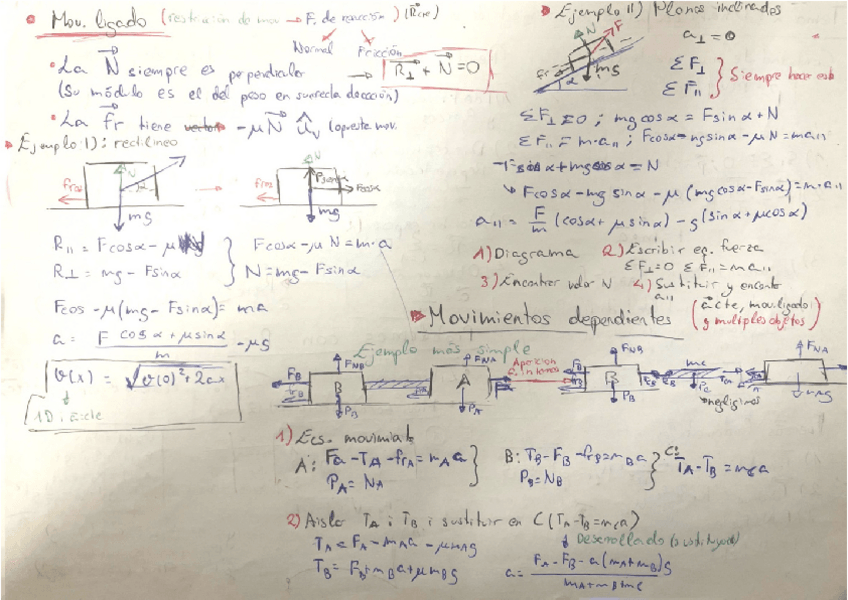 Mov. ligado (restricción de mov → F. de reacción) (R cte)
Normal Fricción
La N⃗ siempre es perpendicular → R⊥ + N = 0
(Su módulo es el del peso en su recta dirección)
La fr tiene -μN⃗ ûv (opuesto mov.
Ejemplo I): rectilíneo
N
froz
α
mg
N
froz
Fsinα
Fcosα
mg
R∥ = Fcosα - μN
R⊥ = mg - Fsinα
Fcosα - μN = m·a
N = mg - Fsinα
Fcos - μ(mg - Fsinα) = ma
a = F cosα + μsinα / m - μg
v(x) = √v(0)² + 2ax
1D. a cte
Ejemplo II) Planos inclinados
N
F
fr
α
mg
a⊥ = 0
ΣF⊥
ΣF∥
Siempre hacer esto
ΣF⊥ = 0 ; mg cosα = Fsinα + N
ΣF∥ = m·a∥ ; Fcosα - mg sinα - μN = ma∥
-Fsinα + mg cosα = N
↳ Fcosα - mg sinα - μ(mg cosα - Fsinα) = m·a∥
a∥ = F/m (cosα + μsinα) - g(sinα + μcosα)
1) Diagrama 2) Escribir eq. fuerza
ΣF⊥ = 0 ΣF∥ = ma∥
3) Encontrar valor N 4) Sustituir y encontr
a∥
Movimientos dependientes (a cte, mov. ligado
y multiples objetos)
Ejemplo más simple
FB
FNB
B
PB
FNA
A
PA
Aparición
F. internas
FB
FNB
B
PB
TB
mc
Pc
negligimos
TA
FNA
mAg
1) Ecs. movimiento
A: Fa - TA - frA = mA a
PA = NA
B: TB - FB - frB = mB a
PB = NB
C: TA - TB = mc a
2) Aislo TA i TB i sustituir en C (TA - TB = mc a)
TA = FA - mA a - μmA g
TB = FB + mB a + μmB g
Desarrollado (o sustituyendo)
a = FA - FB - μ(mA + mB)g / mA + mB + mc